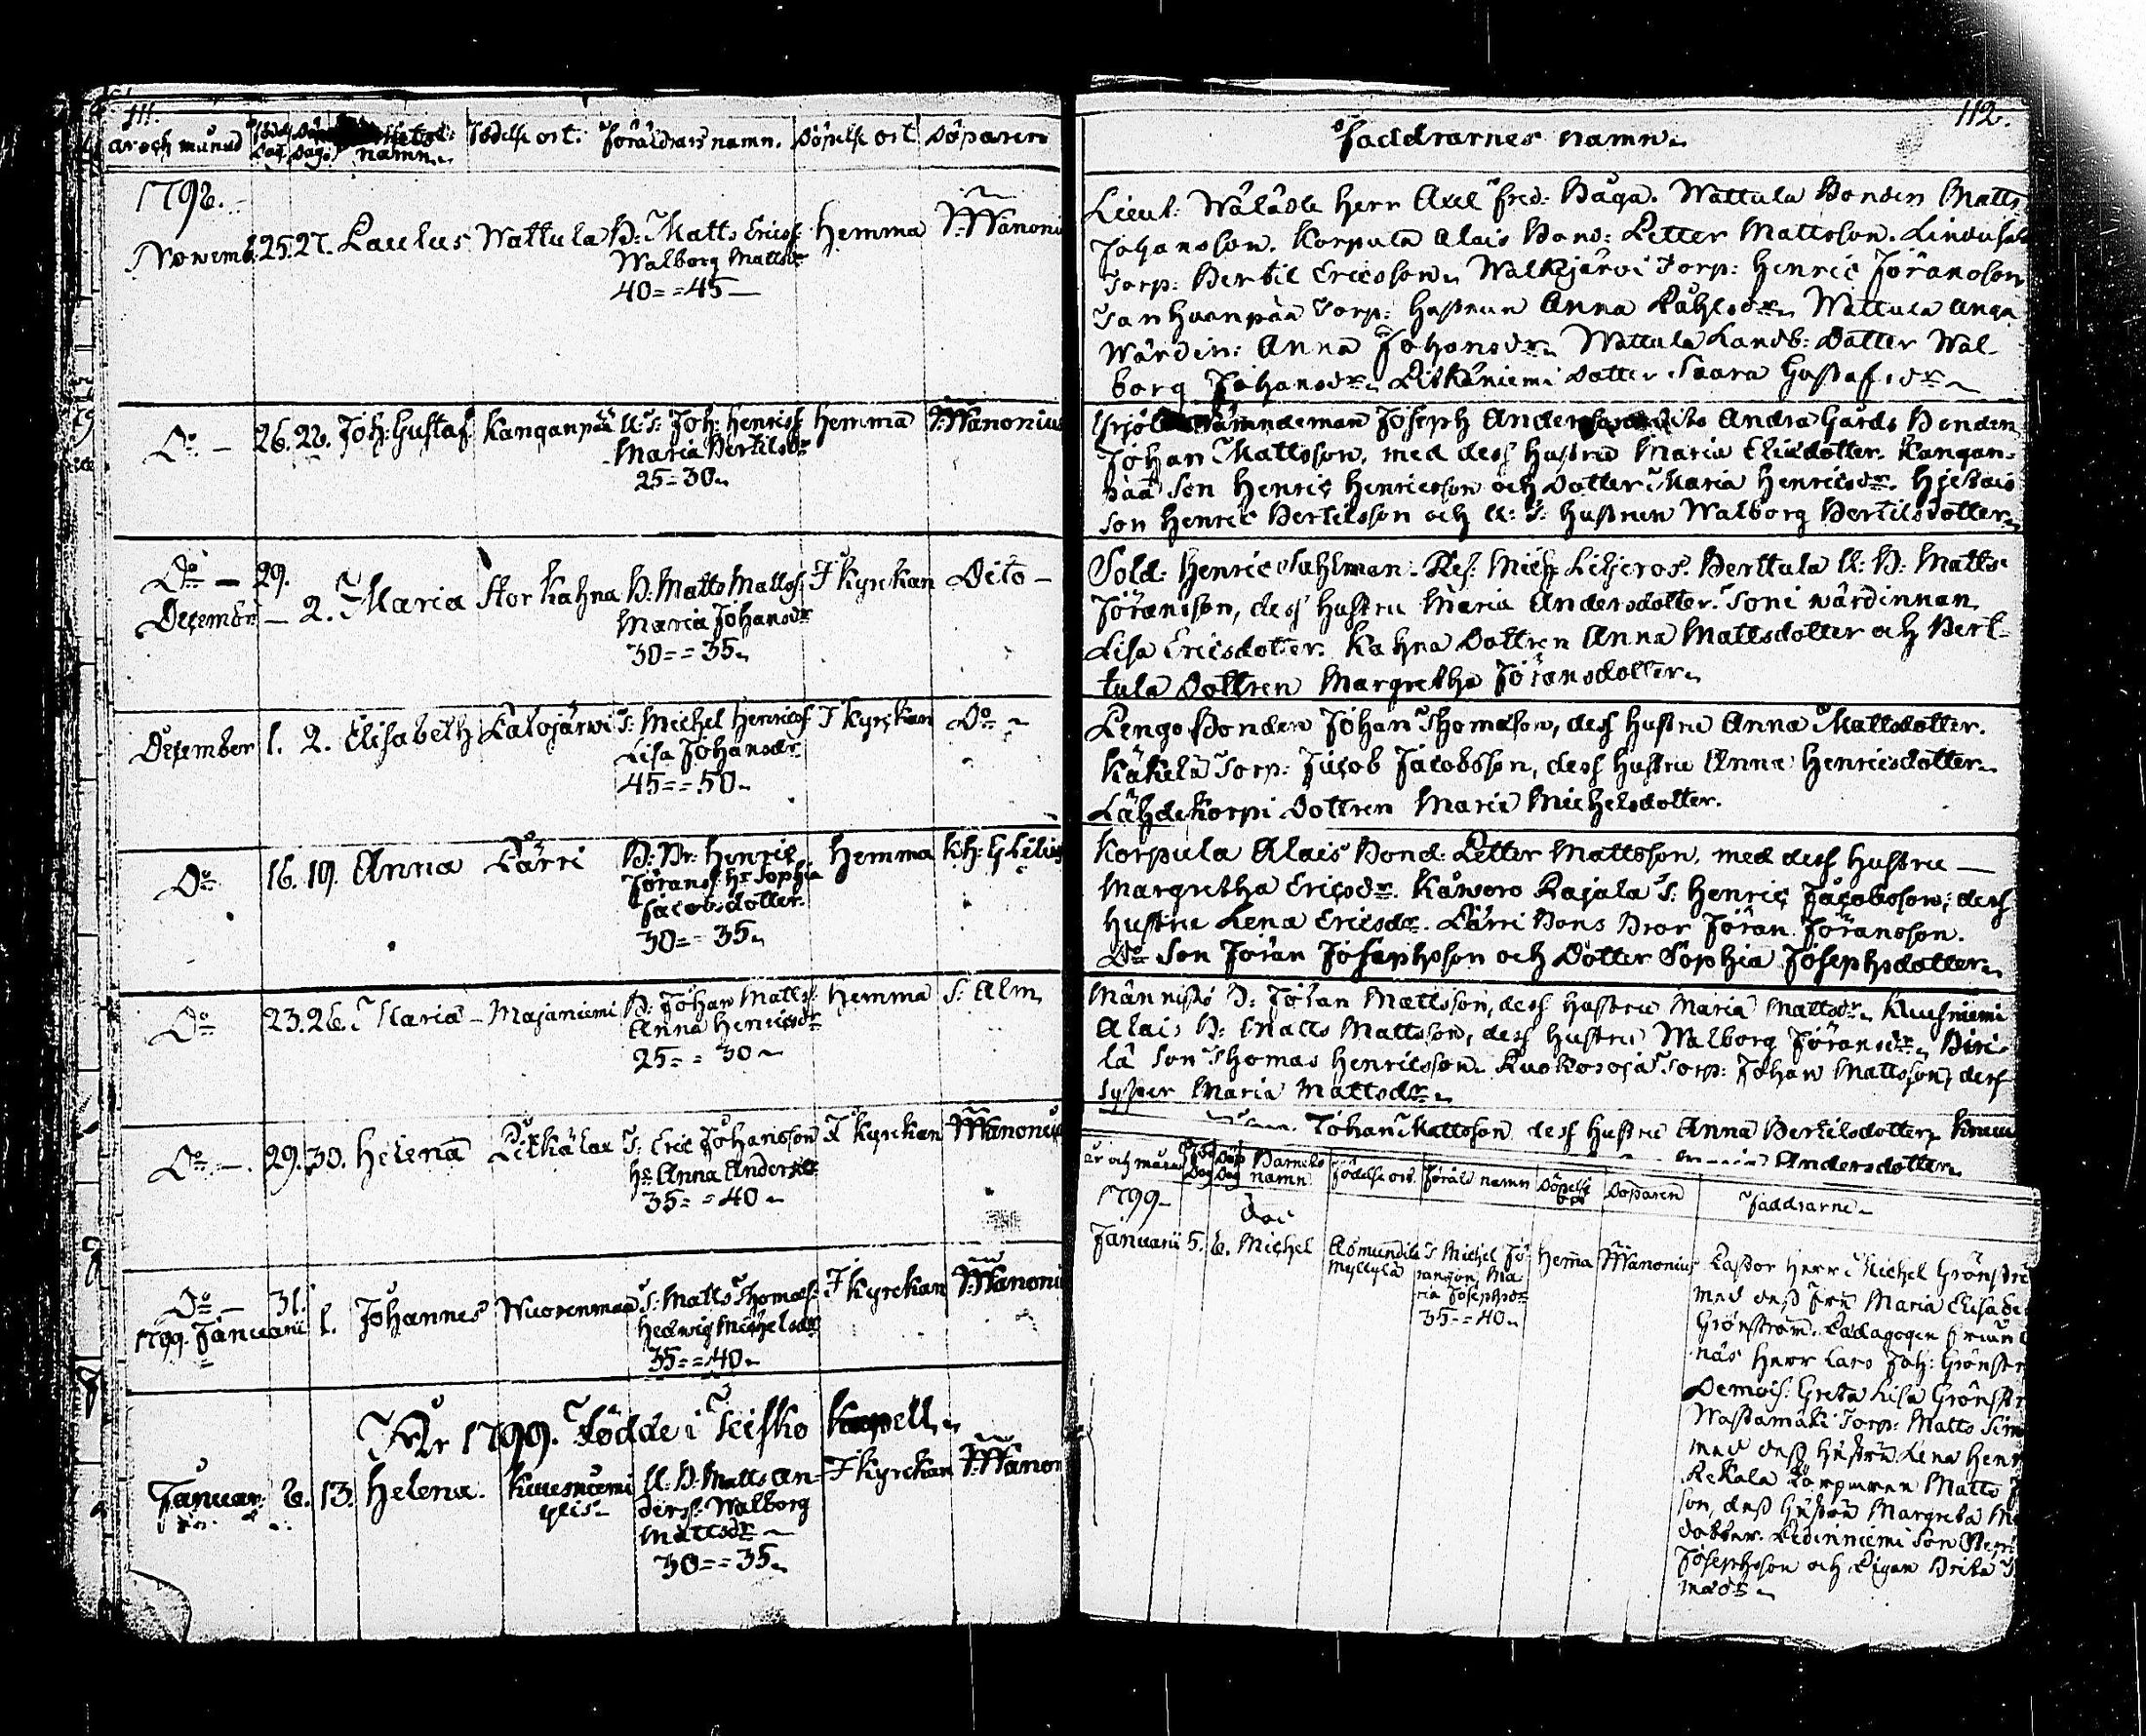 111.
År och månad Född Dag Döp. Dag. Barnets namn. Födelse ort. Föräldrars namn. Döpelse ort Döparen
1798.
Novemb: 25. 27. Paulus Wattula B: Matts Ericss: Hemma P: Wanoni
Walborg Mattsdr
40 = = 45 —
Do — 26. 28. Joh: Gustaf Kanganpää U: S: Joh: Henricss Hemma P: Wanonius
Maria Bertilsdr
25 = 30.
Do — 29.
December — 2. Maria Stor Kahna B: Matts Mattss: I Kyrkan Dito —
Maria Johansdr
30 = = 35.
December 1. 2. Elisabeth Latojärwi T: Michel Henricss I Kyrkan Do
Lisa Johansdr
45 = = 50.
Do 16. 19. Anna Pärri B: Br: Henric Hemma Kh: G Lilius
Jöranss: Hr Sophia
Jacobsdotter.
30 = = 35.
Do 23. 26. Maria Majaniemi B: Johan Matts: Hemma S: Alm
Anna Henricsdr
25 = = 30
Do — 29. 30. Helena Pitkälax T: Eric Johansson I Kyrkan P: Wanonius
Hr Anna Andersdr
35 = = 40
Do — 31.
1799. Januarii 1. Johannes Wuorenmaa T: Matts Thomass: I Kyrkan P: Wanoni
Hedwig Michelsdr
35 = = 40
År 1799. Födde i Kisko Kapell.
Januar: 6. 13. Helena. Kuusniemi U: B: Matts An- I Kyrkan P: Wanon
ylis derss: Walborg
Mattsdr
30 = = 35.
112.
Faddrarnes namn.
Lieut: Wälädle Herr Axel Fred: Båga. Wattula Bonden Matts
Johansson. Korpula Alais Bond: Petter Mattsson.
Torp: Bertil Ericsson. Walkjärwi Torp: Henric Jöransson
Torp: Hustrun Anna Påhlsdr. Wattula unga
Wärdin: Anna Johansdr. Wattula Landb: Dotter Wal-
borg Johansdr. Pitkäniemi Dotter Saara Gustafsdr
Nämndeman Joseph Andersson Andra Gårds Bonden
Johan Mattsson, med dess Hustru Maria Eliedotter. Kangan-
pää Son Henric Henricsson och Dotter Maria Henricsdr.
Son Henric Bertilsson och U: S: Hustrun Walborg Bertilsdotter.
Sold: Henric Sahlman. Res: Mich: Liljeros. Berttula U: B: Matts
Jöransson, dess Hustru Maria Andersdotter. Toni wärdinnan
Lisa Ericsdotter. Kahna Dottren Anna Mattsdotter och Bert-
tula Dottren Margretha Jöransdotter.
Pengo Bonden Johan Thomasson, dess Hustru Anna Mattsdotter.
Käkelä Torp: Jacob Jacobsson, dess Hustru Anna Henricsdotter.
Lähdekorpi Dottren Maria Michelsdotter.
Korpula Alais Bond: Petter Mattsson, med dess Hustru —
Margretha Ericsdr. Rajala T: Henric Jacobsson; dess
Hustru Lena Ericsdr. Pärri Bons Bror Jöran Jöransson.
Do Son Jöran Josephsson och Dotter Sophia Josephsdotter.
Männistö B: Johan Mattsson, dess Hustru Maria Mattsdr. Kuusniemi
Alais B: Matts Mattsson, dess Hustru Walborg Jöransdr. Piri-
lä Son Thomas Henricsson. Ruokosoja Torp: Johan Mattsson, dess
syster Maria Mattsdr.
Johan Mattsson dess Hustru Anna Bertilsdotter
Andersdotter.
År och månad Föd Dag Döp Dag Barnets namn Födelse ort Föräld namn Döpelse ort Döparen Faddrarne
1799
Januarii 5. 6. Michel Asmundila T: Michel Jö- Hema P: Wanonius Pastor Herr Michel Grönström
Myllylä ransson, Ma- med dess Fru Maria Elisabe
ria Josephsdr Grönström. Pædagogen
35 = = 40. näs Herr Lars Joh: Grönstr
Demois: Greta Lisa Grönstr
Wastamäki Torp: Matts Sim
med dess Hustru Lena Henr
Rekala Torparen Matts J
son, dess Hustru Margreta Ma
dotter. Son
Josephsson och Pigan Brita T
masdr